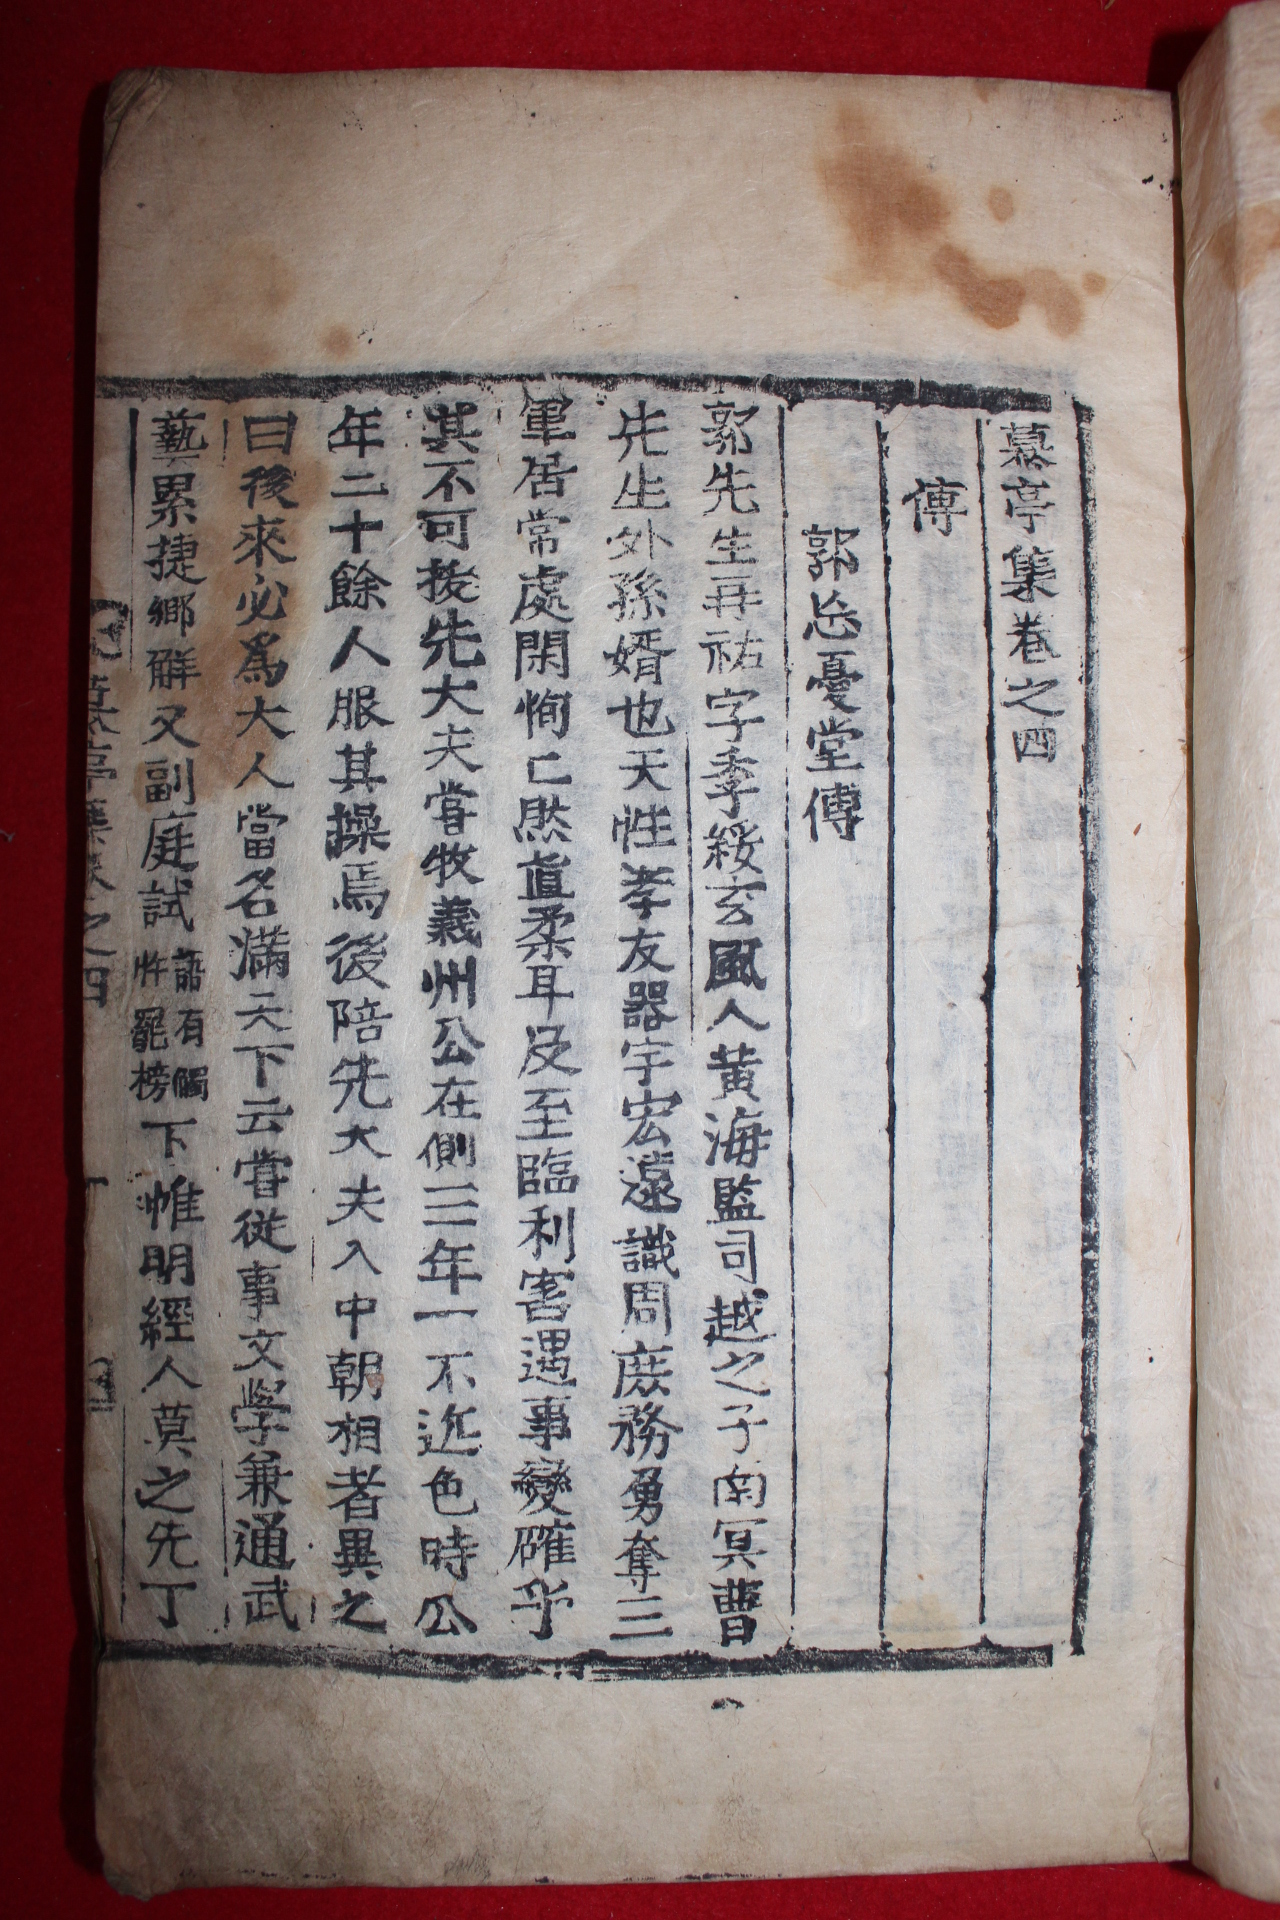 慕亭集卷之四
傳
郭忘憂堂傳
郭先生再祐字季綏玄風人黃海監司越之子南冥曺
先生外孫婿也天性孝友器宇宏遠識周庶務勇奪三
軍居常處閑恂亡然直柔耳及至臨利害遇事變確乎
其不可拔先大夫嘗牧義州公在側三年一不近色時公
年二十餘人服其操焉後陪先大夫入中朝相者異之
曰後來必爲大人當名滿天下云嘗從事文學兼通武
藝累捷鄕解又副庭試語有觸忤罷榜下帷明經人莫之先丁
慕亭集卷之四 一